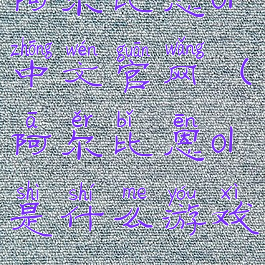 阿尔比恩ol
zhōng wén guān wǎng
中文官网（
ā ěr bǐ ēn
阿尔比恩ol
shì shí me yóu xì
是什么游戏